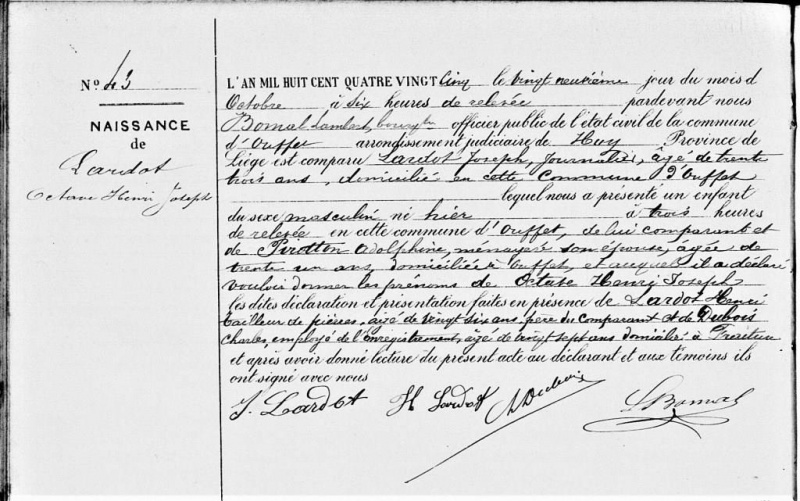 N° 43
NAISSANCE
de
Lardot
Octave Henri Joseph
L'AN MIL HUIT CENT QUATRE VINGT cinq le vingt neuvième jour du mois d
Octobre à six heures de relevée pardevant nous
Bomal Lambert, bourgtre officier public de l'état civil de la commune
d'Ouffet arrondissement judiciaire de Huy, Province de
Liège est comparu Lardot Joseph, journalier, âgé de trente
trois ans, domicilié en cette commune d'Ouffet
lequel nous a présenté un enfant
du sexe masculin né hier à trois heures
de relevée en cette commune d'Ouffet, de lui comparant et
de Pirotton Adolphine, ménagère son épouse, âgée de
trente un ans, domiciliée à Ouffet, et auquel il a déclaré
vouloir donner les prénoms de Octave Henri Joseph
les dites déclaration et présentation faites en présence de Lardot Henri
tailleur de pierres, âgé de vingt six ans, frère du comparant et de Dubois
Charles, employé de l'enregistrement, âgé de vingt sept ans domicilié à Fraiture
et après avoir donné lecture du présent acte au déclarant et aux témoins ils
ont signé avec nous
J. Lardot H Lardot Dubois LBomal